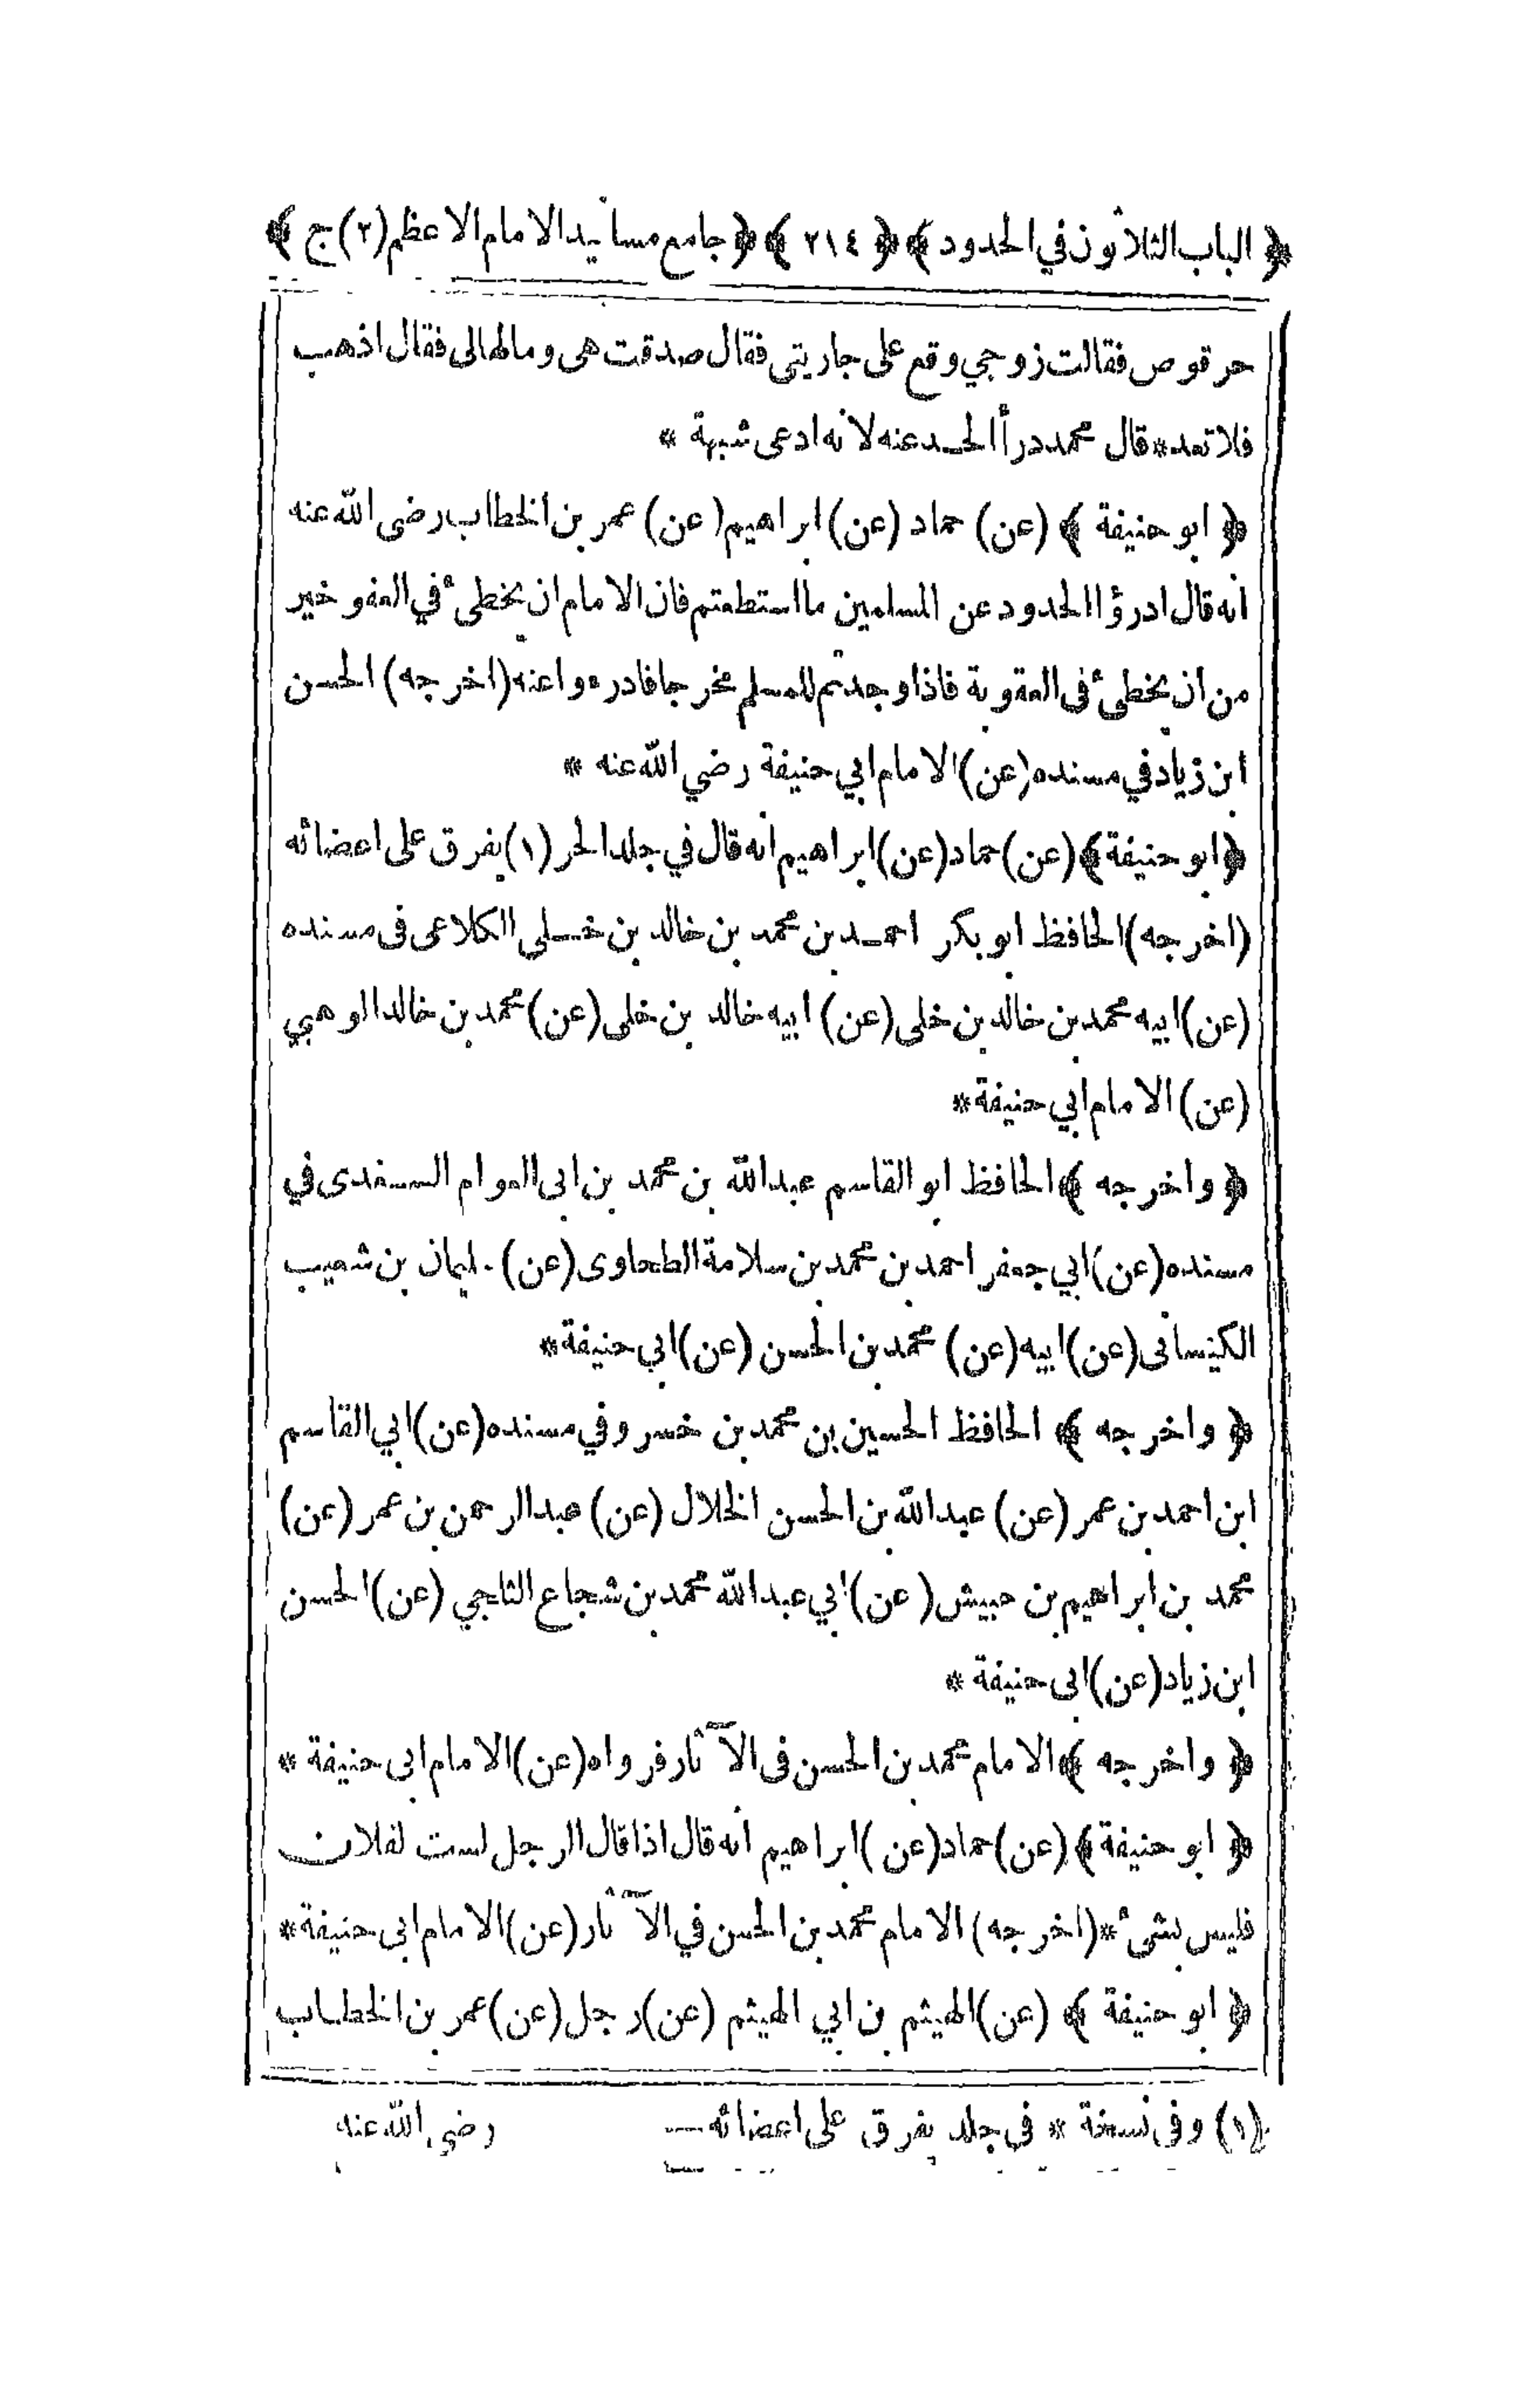 ﴿ الباب الثلاثون في الحدود ﴾ ﴿ ٢١٤ ﴾ ﴿ جامع مسانيد الامام الاعظم (٢) ج ﴾
حرقوص فقالت زوجي وقع على جاريتى فقال صدقت هى ومالهالى فقال اذهب
فلا تعد * قال محمد درأ الحد عنه لانه ادعى شبهة *
﴿ ابو حنيفة ﴾ (عن) حماد (عن) ابراهيم (عن) عمر بن الخطاب رضى الله عنه
انه قال ادرؤا الحدود عن المسلمين ما استطعتم فان الامام ان يخطئ في العفو خير
من ان يخطئ فى العقوبة فاذا وجدتم للمسلم مخرجا فادرءوا عنه (اخرجه) الحسن
ابن زياد في مسنده (عن) الامام ابي حنيفة رضي الله عنه *
﴿ ابو حنيفة ﴾ (عن) حماد (عن) ابراهيم انه قال في جلد الحر (١) يفرق على اعضائه
(اخرجه) الحافظ ابو بكر احمد بن محمد بن خالد بن خلى الكلاعى فى مسنده
(عن) ابيه محمد بن خالد بن خلى (عن) ابيه خالد بن خلى (عن) محمد بن خالد الوهبي
(عن) الامام ابي حنيفة *
﴿ واخرجه ﴾ الحافظ ابو القاسم عبد الله بن محمد بن ابى العوام السغدى في
مسنده (عن) ابي جعفر احمد بن محمد بن سلامة الطحاوى (عن) سليمان بن شعيب
الكيسانى (عن) ابيه (عن) محمد بن الحسن (عن) ابي حنيفة *
﴿ واخرجه ﴾ الحافظ الحسين بن محمد بن خسرو في مسنده (عن) ابي القاسم
ابن احمد بن عمر (عن) عبد الله بن الحسن الخلال (عن) عبد الرحمن بن عمر (عن)
محمد بن ابراهيم بن حبيش (عن) ابي عبد الله محمد بن شجاع الثلجي (عن) الحسن
ابن زياد (عن) ابى حنيفة *
﴿ واخرجه ﴾ الامام محمد بن الحسن فى الآثار فرواه (عن) الامام ابى حنيفة *
﴿ ابو حنيفة ﴾ (عن) حماد (عن) ابراهيم انه قال اذا قال الرجل لست لفلان
فليس بشئ * (اخرجه) الامام محمد بن الحسن في الآثار (عن) الامام ابى حنيفة *
﴿ ابو حنيفة ﴾ (عن) الهيثم بن ابي الهيثم (عن) رجل (عن) عمر بن الخطاب
(١) وفى نسخة * فى جلد يفرق على اعضائه — رضى الله عنه